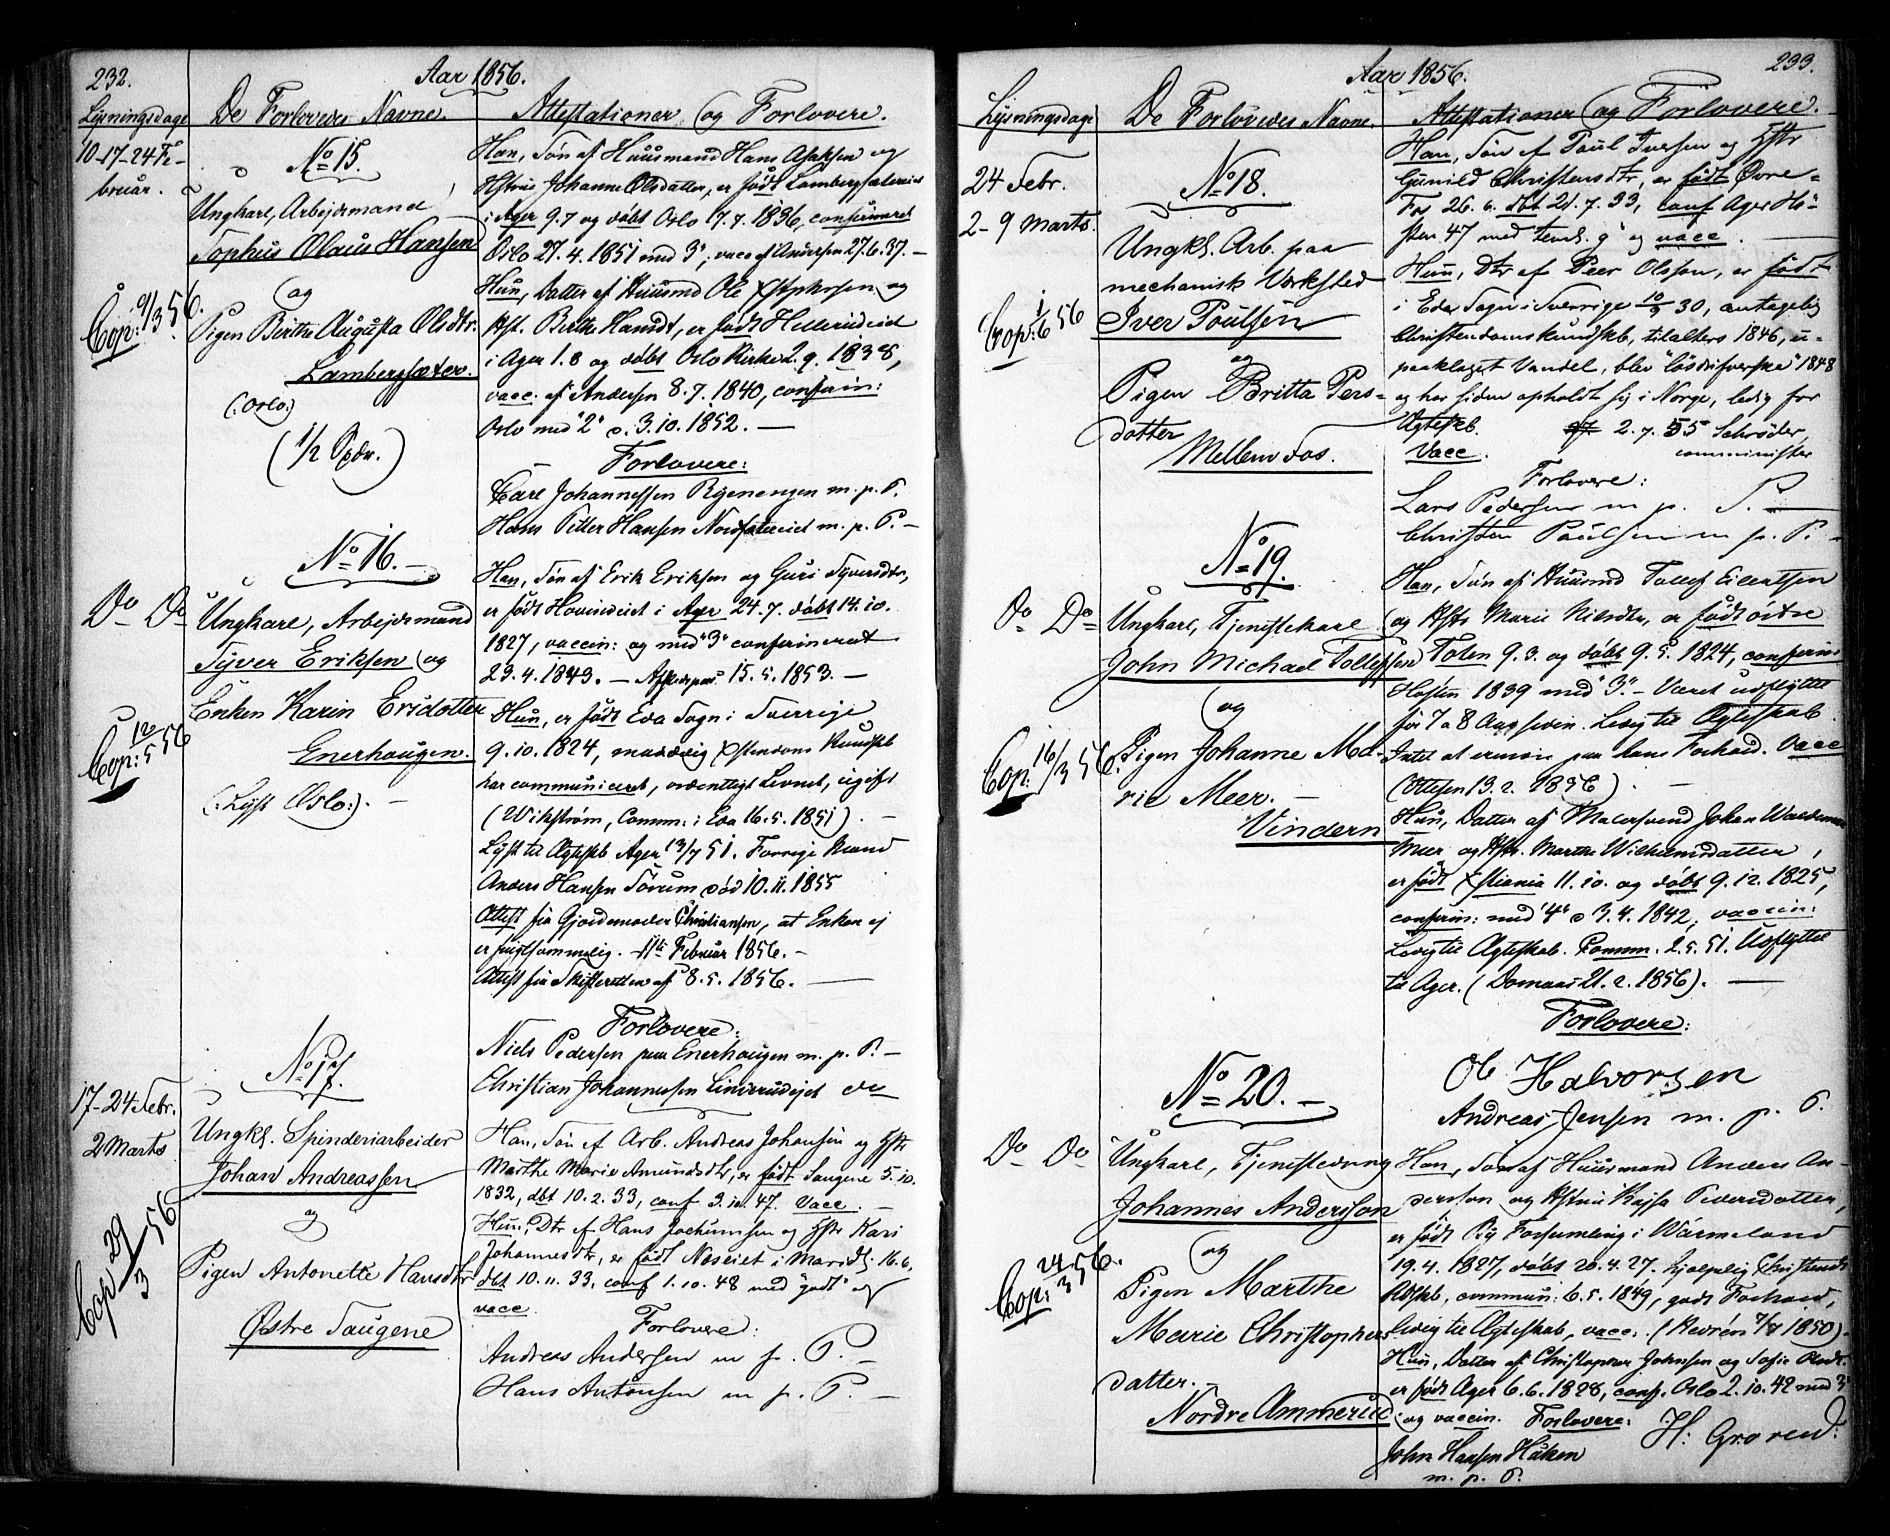 232.
Aar 1856.
Lysningsdage
De Forlovedes Navne.
Attestationer og Forlovere.
10-17-24 Fe-
bruar.
No 15.
Ungkarl, Arbeidsmand
Tophus Olaus Hansen
og
Pigen Berthe Augusta Olsdtr.
Lambergsæter.
(:Oslo:)
(1/2 Spdr.)
Cop: 9/3 56.
Han, Søn af Huusmand Hans Isaksen og
Hstru Johanne Olsdatter, er født Lambergsætereiet
i Ager 9.7 og døbt Oslo 17.7.1836, confirmeret
Oslo 27.4.1851 med 3", vacc af Andersen 27.6.37. –
Hun, Datter af Huusmd Ole Xstophersen og
Hst. Berthe Hansdt, er født Hellerudeiet
i Ager 1.8 og døbt Oslo Kirke 2.9.1838,
vacc. af Andersen 8.7.1840, confirm:
Oslo med "2" d. 3.10.1852. –
Forlovere:
Carl Johannessen Ryenengen m.p.P.
Hans Petter Hansen Nordsætereiet m.p.P. –
No 16. –
Do Do
Ungkarl, Arbeidsmand
Syver Eriksen og
Enken Karin Ersdotter
Enerhaugen.
(:Lyst Oslo:). –
Cop: 12/5 56
Han, Søn af Erik Eriksen og Guri Syversdtr,
er født Hovindeiet i Ager 24.7. døbt 14.10.
1827, vaccin: og med "3" confirmeret
23.4.1843. – Afskedspas. 15.5.1853. –
Hun, er født Eda Sogn i Sverrige
9.10.1824, Xstendoms Kundskb
har communiceret, ordentligt Levnet, ugift
(Wikstrøm, Comm: i Eda 16.5.1851). –
Lyst til Ægteskb Ager 13/7 51. Forrige Mand
Anders Hansen Sørum død 10.11.1855
Attest fra Gjordemoder Christiansen, at Enken ej
er frugtsommelig. 11te Februar 1856. –
Attest fra Skifteretten af 8.5.1856. –
Forlovere:
Niels Pedersen paa Enerhaugen m.p.P. –
Christian Johannessen Linderudejet do
No 17.
17-24 Febr.
2 Marts
Ungkl. Spinderiarbeider
Johan Andreassen
og
Pigen Antonette Hansdtr
Østre Saugene
Cop 29/3 56
Han, Søn af Arb. Andreas Johansen og Hstr
Marthe Marie Amundsdtr, er født Saugene 5.10.
1832, dbt 10.2.33, conf 3.10.47. Vacc. –
Hun, Dtr af Hans Jochumsen og Hstr Kari
Johannesdtr, er født Neseiet i Maridl. 16.6,
dbt 10.11.33, conf 1.10.48 med "godt" og
vacc.
Forlovere:
Andreas Andersen m.p.P. –
Hans Antonsen m.p.P. –
233.
Aar 1856.
Lysningsdage
De Forlovedes Navne.
Attestationer og Forlovere.
24 Febr.
2-9 Marts.
No 18.
Ungkl. Arb. paa
mechanisk Værksted
Iver Poulsen
og
Pigen Britta Pers-
datter
Mellem Fos.
Cop: 1/6 56
Han, Søn af Poul Iversen og Hstr
Gunild Christensdtr, er født Øvre-
Fos 26.6. dbt 21.7.33, conf Ager Hø-
sten 47 med g" og vacc. –
Hun, Dtr af Peer Olsson, er født
i Eda Sogn i Sverrige 10/3 30, antagelig
Christendomskundskb, tilalters 1846, u-
paaklaget Vandel, blev "løsdrifverska" 1848
og har siden opholdt sig i Norge, ledig for
Ægteskb. 2.7.55 Schrøder,
Vacc. comminister
Forlovere:
Lars Pedersen m.p.P.
Christen Poulsen m.p.P. –
No 19.
Do Do
Ungkarl, Tjenestekarl
John Michael Tollefsen
og
Pigen Johanne Ma-
rie Meer. –
Vindern
Cop: 16/3 56.
Han, Søn af Huusmd Tollef Eilertsen
og Hstr Marie Nilsdtr, er født østre
Toten 9.3. og døbt 9.5.1824, confirm
Høsten 1839 med "3". – Været udflyttet
for 7 a 8 Aar siden. Ledig til Ægteskab.
Intet at erindre paa hans Forhold. Vacc
(Ottesen 13.2.1856). –
Hun, Datter af Malersvend Johan Waldemar
Meer og Hstr. Marthe Wilhelmsdatter,
er født Xstiania 11.10. og døbt 9.12.1825,
confirm: med "4" d 3.4.1842, vaccin:
Ledig til Ægteskab. Comm. 2.5.51. Udflyttet
til Ager. (Domaas 21.2.1856). –
Forlovere:
Ole Halvorsen
Andreas Jensen m.p.P.
No 20. –
Do Do
Ungkarl, Tjenestedreng
Johannes Andersson
og
Pigen Marthe
Marie Christophers-
datter. –
Nordre Ammerud
Cop: 24/3 56.
Han, Søn af Huusmand Anders An-
dersson og Hstru Kajsa Petersdatter,
er født By Forsamling i Wärmeland
19.4.1827, døbt 20.4.27. hjælpelig Christendoms
Kdskb, commun: 6.5.1849, godt Forhold,
ledig til Ægteskab, vacc. (Revrén 1850).
Hun, Datter af Christopher Johnsen og Sofie Olsdt.
er født Ager 6.6.1828, conf. Oslo 2.10.42 med 3"
og vaccin. Forlovere:
H: Grorud
John Hansen Haken
m.p.P.